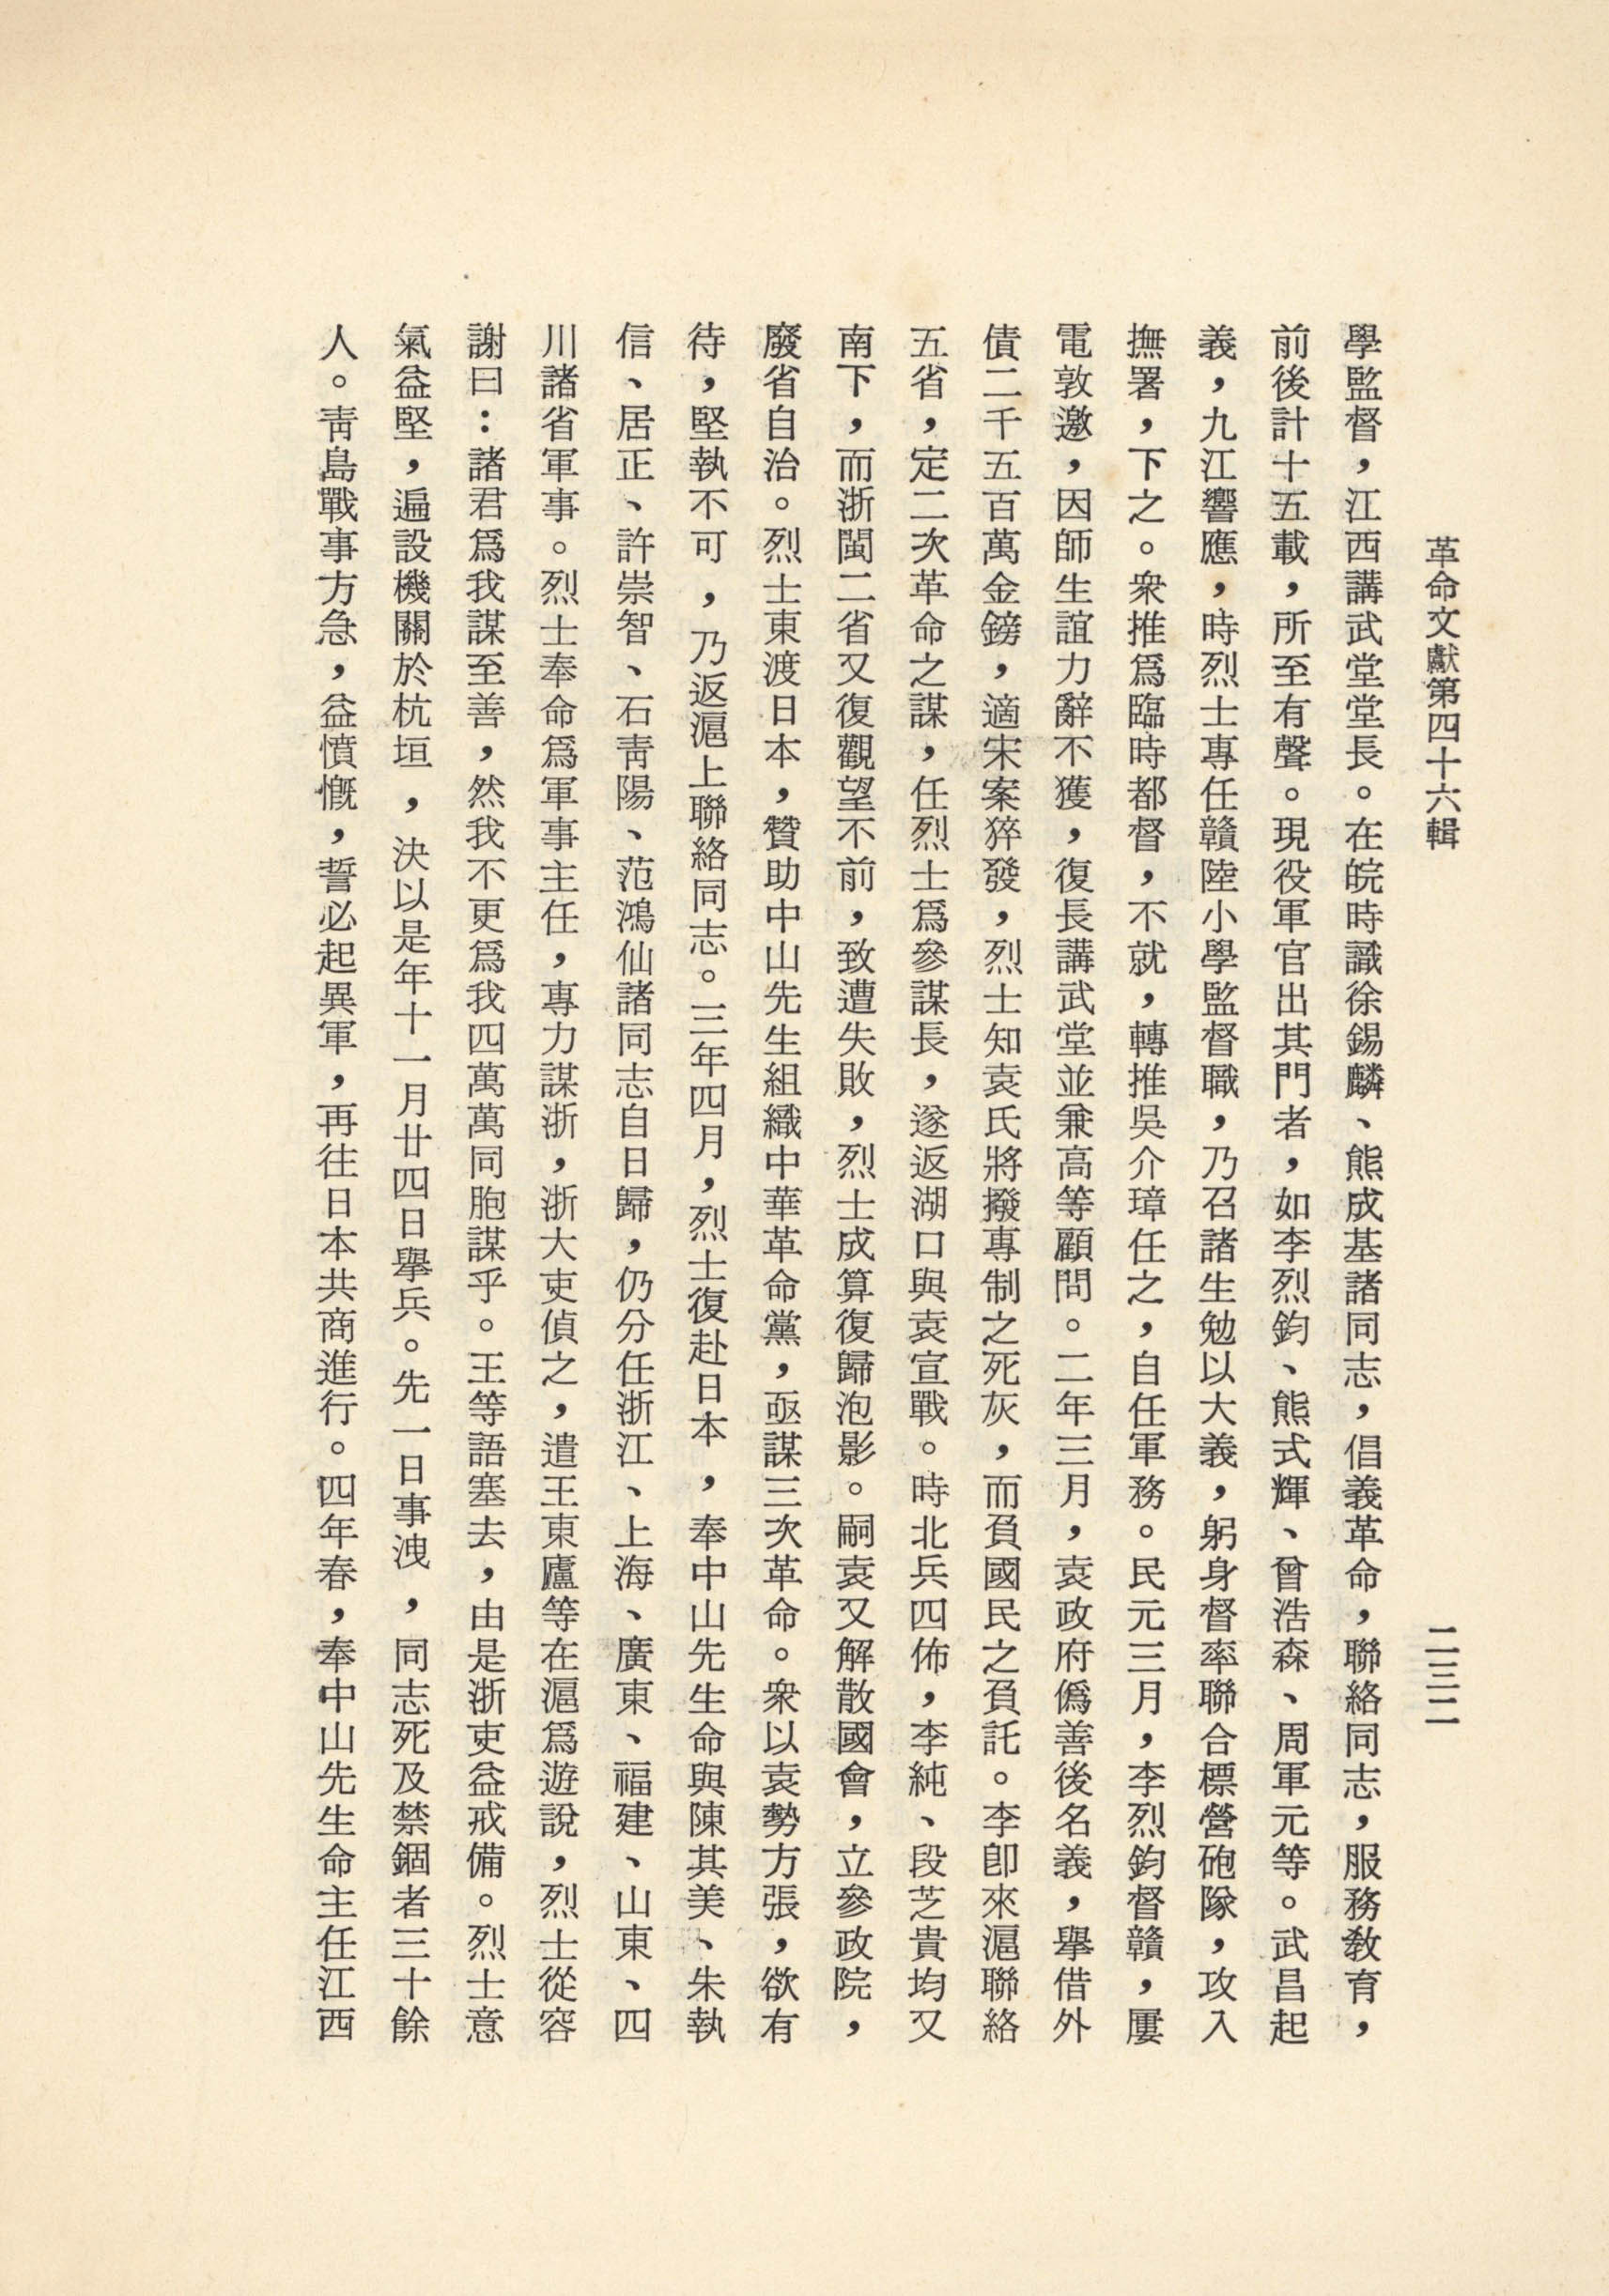 革命文獻第四十六輯
二三二
學監督，江西講武堂堂長。在皖時識徐錫麟、熊成基諸同志，倡義革命，聯絡同志，服務敎育，
前後計十五載，所至有聲。現役軍官出其門者，如李烈鈞、熊式輝、曾浩森、周軍元等。武昌起
義，九江響應，時烈士專任贛陸小學監督職，乃召諸生勉以大義，躬身督率聯合標營砲隊，攻入
撫署，下之。衆推爲臨時都督，不就，轉推吳介璋任之，自任軍務。民元三月，李烈鈞督贛，屢
電敦邀，因師生誼力辭不獲，復長講武堂並兼高等顧問。二年三月，袁政府僞善後名義，舉借外
債二千五百萬金鎊，適宋案猝發，烈士知袁氏將撥專制之死灰，而負國民之負託。李卽來滬聯絡
五省，定二次革命之謀，任烈士爲參謀長，遂返湖口與袁宣戰。時北兵四佈，李純、段芝貴均又
南下，而浙閩二省又復觀望不前，致遭失敗，烈士成算復歸泡影。嗣袁又解散國會，立參政院，
廢省自治。烈士東渡日本，贊助中山先生組織中華革命黨，亟謀三次革命。衆以袁勢方張，欲有
待，堅執不可，乃返滬上聯絡同志。三年四月，烈士復赴日本，奉中山先生命與陳其美、朱執
信、居正、許崇智、石靑陽、范鴻仙諸同志自日歸，仍分任浙江、上海、廣東、福建、山東、四
川諸省軍事。烈士奉命爲軍事主任，專力謀浙，浙大吏偵之，遣王東廬等在滬爲遊說，烈士從容
謝曰：諸君爲我謀至善，然我不更爲我四萬萬同胞謀乎。王等語塞去，由是浙吏益戒備。烈士意
氣益堅，遍設機關於杭垣，決以是年十一月廿四日舉兵。先一日事洩，同志死及禁錮者三十餘
人。靑島戰事方急，益憤慨，誓必起異軍，再往日本共商進行。四年春，奉中山先生命主任江西